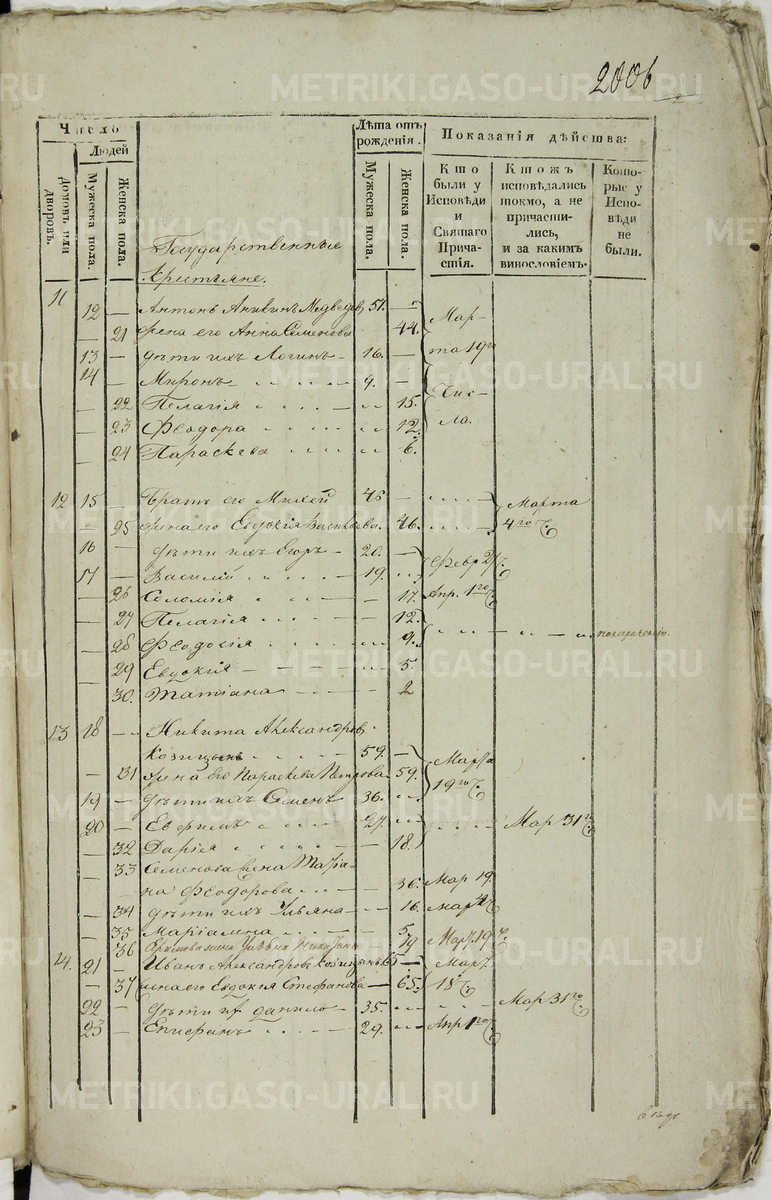 2006
Число
Лѣта отъ рожденія.
Показанія дѣйства:
Людей
Домовъ или дворовъ.
Мужеска пола.
Женска пола.
Мужеска пола.
Женска пола.
Кто были у Исповѣди и Святаго Причастія.
Ктожъ исповѣдались токмо, а не причастились, и за какимъ винословіемъ.
Которые у Исповѣди не были.
Государственные
крестьяне.
11 12 — Антонъ Аникинъ Медведев 51. — Мар-
— 21 жена его Анна Семенова 44.
13 — дѣти ихъ Логинъ 16. — та 19го
14 — Миронъ 9. —
— 22 Пелагія 15. Чис-
— 23 Феодора 12. ла.
— 24 Параскева 6.
12 15 — Братъ его Михей 46 — Марта
— 25 жена его Евдокія 46. 4го
16 — дѣти ихъ Егоръ 20. — Февр
17 — Василій 19.
— 26 Соломія 17. Апр. 1го
— 27 Пелагія 12.
— 28 Феодосія 9.
— 29 Евдокія 5.
— 30. Татіана 2
13 18 — Никита Александров
Козицынъ 59. — Марта
— 31 жена его Параскева Петрова 59. 19го
19 — дѣти ихъ Семенъ 36.
20 — Евфимъ 27. Мар 31го
— 32 Дарія 18.
— 33 Семенова жена Татіа-
на Феодорова 36. Мар 19.
— 34 дѣти ихъ Ульяна 16. мар
— 35 Маріамна 5
36 19 Мар. 19
14. 21 — Иванъ Александровъ Козицынъ 65 — Март.
— 37 жена его Евдокія Стефанова — 65. 18
22 — дѣти их Данило 35. Мар 31го
23 — Епифанъ 29. Апр 1го
METRIKI.GASO-URAL.RU